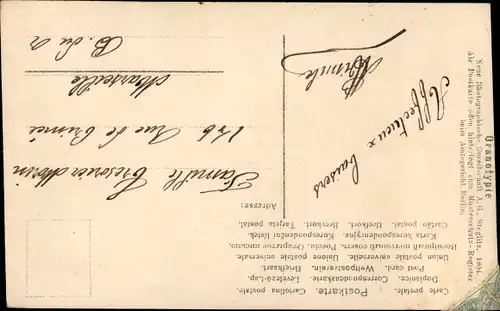 Carte postale. Postkarte. Cartolina postale.
Dopisnice. Correspondenzkarte. Levelező-Lap.
Post card. Weltpostverein. Briefkaart.
Union postale universelle. Unione postale universale.
Karta korespondencyjna. Korespondenční lístek.
Cartão postal. Brefkort. Brevkort. Tarjeta postal.
Adresse:
Famille
146 Rue de Crimée
Marseille
B. du R
Affectueux baisers
Mimile
Oranotypie
Neue Photographische Gesellschaft A. G., Steglitz. 1904.
die Postkarte oben hinterlegt zum Musterschutz-Register
beim Amtsgericht Berlin.